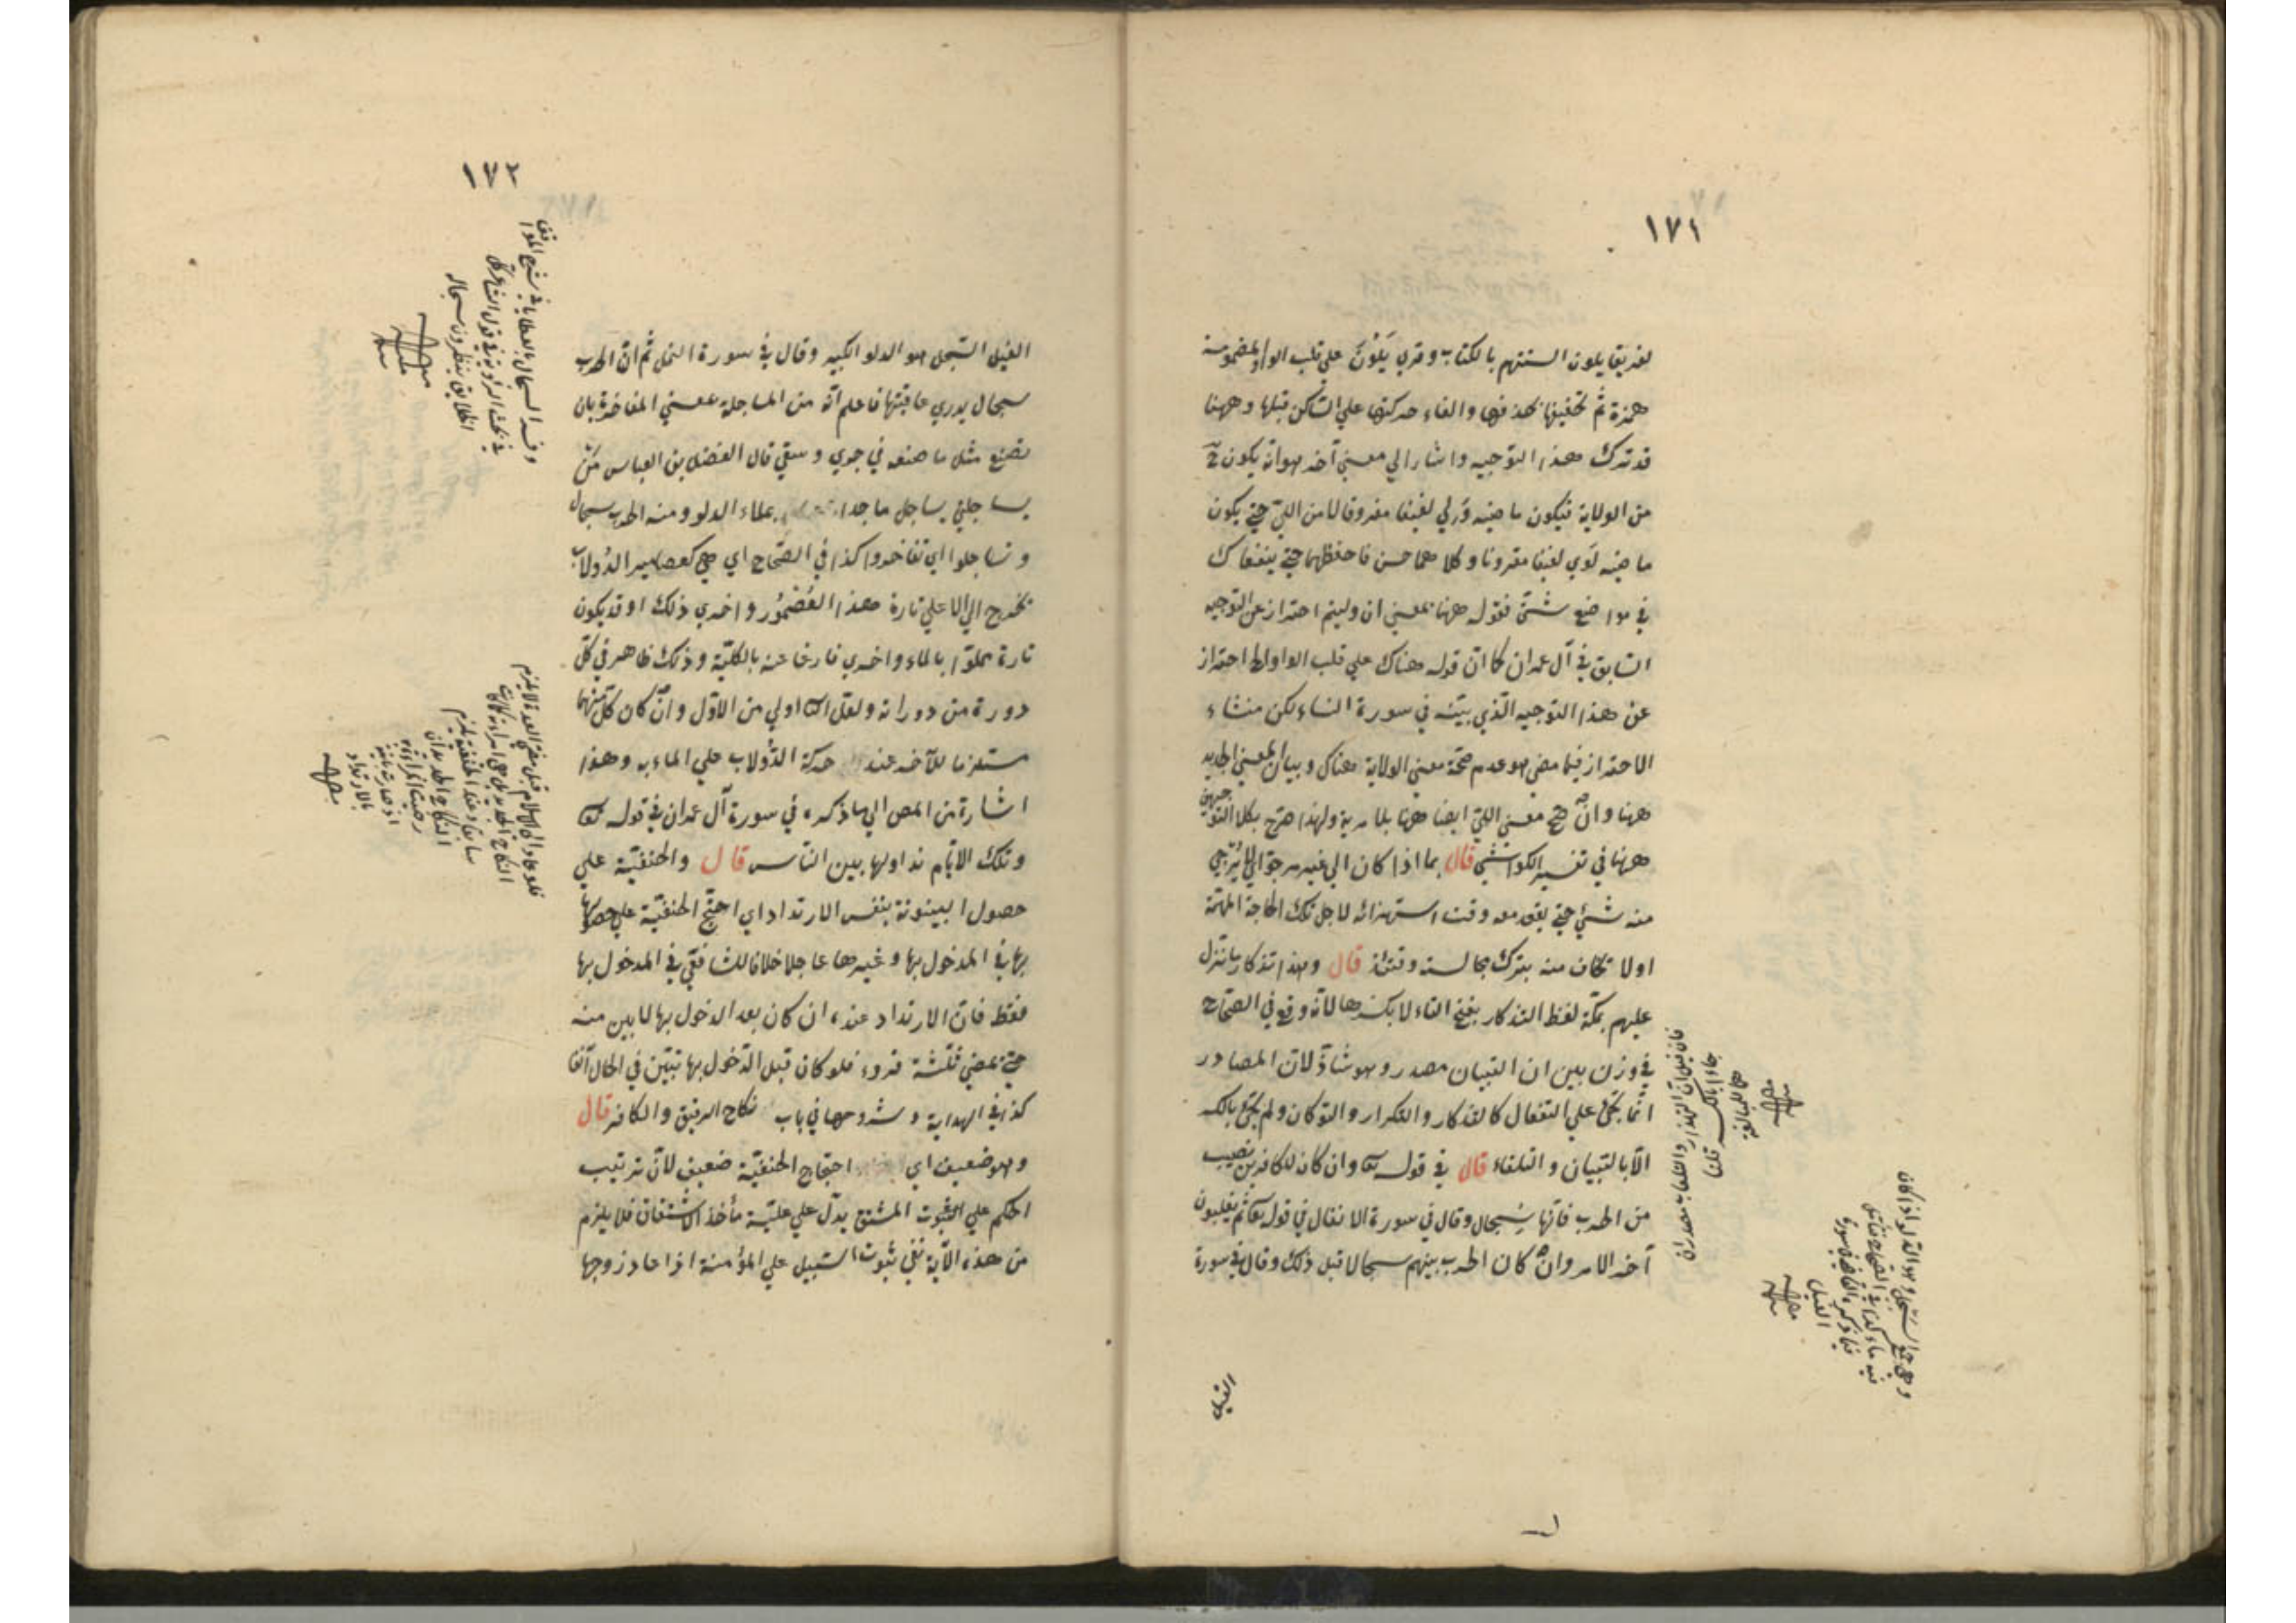 ١٧١
لفريقا يلون السنتهم بالكتاب وقرئ يَلُوْنَ على قلب الواو المضمومة
همزة ثم تخفيفها بحذفها والقاء حركتها على الساكن قبلها وههنا
قد ترك هذا التوجيه واشار الي معني آخر هو انه يكون ح
من الولاية فيكون ماضيه وَلي لفيفا مفروقا لا من اللي حتي يكون
ماضيه لَوَي لفيفا مقرونا وكلاهما حسن فاحفظهما حتي ينفعاك
في مواضع شتّي فقوله ههنا بمعني ان وليتم احتراز عن التوجيه
السابق في آل عمران كما انّ قوله هناك علي قلب الواو الخ احتراز
عن هذا التوجيه الّذي بيّنه في سورة النساء لكن منشاء
الاحتراز فيما مضي هو عدم صحّة معني الولاية هناك وبيان المعني الجديد
ههنا وان صح معني اللّي ايضا ههنا بلا مرية ولهذا صرح بكلا التوجيهين
ههنا في تفسير الكواشي قال بما اذا كان الي غير مرجوّ اي لا يُرجي
منه شيء حتي يقعد معه وقت استهزائه لاجل تلك الحاجة المهمّة
اولا تخاف منه بترك مجالسته وقتئذ قال وهذا تذكار ما نزل
عليهم بمكّة لفظ التذكار بفتح التاء لا بكسرها لانّه وقع في الصّحاح
في وزن بين ان التبيان مصدر وهو شاذّ لانّ المصادر
انّما تجئ علي التفعال كالتذكار والتكرار والتوكاف ولم يجئ بالكسر
الّا بالتبيان والتلقاء قال في قوله تعا وان كان للكافرين نصيب
من الحرب فانّها سِجال وقال في سورة الانفال في قوله تعا ثم يغلبون
آخر الامر وان كان الحرب بينهم سجالا قبل ذلك وقال في سورة
فان قيل انّ التهذار والتلعاب مصدران
جاءا بالكسر قلنا
وهي جمع السَّجل وهو الدّلو اذا كان
فيه ماء كذا في الصّحاح
الفيل
الفيل
١٧٢
الفيل السّجل هو الدلو الكبير وقال في سورة النمل ثم انّ الحرب
سجال يدري عاقبتها فاعلم انّه من المساجلة بمعني المفاخرة بان
تصنع مثل ما صنعه في جري وسقي قال الفضل بن العباس مَنْ
يساجلني يساجل ماجدا يملاء الدلو ومنه الحرب سجال
وتساجلوا اي تفاخروا كذا في الصّحاح اي هي كعصامير الدُولاب
تخرج الي الاعلي تارة هذا العُصْمُور واخري ذلك او قد يكون
تارة مملوّا بالماء واخري فارغا عنه بالكليّة وذلك ظاهر في كلّ
دورة من دوراته ولعلّ اولي من الاوّل وان كان كلّ منهما
مستلزما للآخر عند حركة الدُّولاب علي الماء به وهذا
اشارة من المص الي ما ذكره في سورة آل عمران في قوله تعا
وتلك الايّام نداولها بين النّاس قال والحنفيّة علي
حصول البينونة بنفس الارتداد اي احتجّ الحنفيّة علي حصولها
بها في المدخول بها وغيرها عاجلا خلافا للشافعّي في المدخول بها
فقط فانّ الارتداد عنده ان كان بعد الدخول بها لا بين منه
حتي تمضي ثلثة قروء فلو كان قبل الدّخول بها تبيّن في الحال آنفا
كذا في الهداية وشروحها في باب نكاح الرقيق والكافر قال
وهو ضعيف اي احتجاج الحنفيّة ضعيف لانّ ترتيب
الحكم علي الثبوت المشتق يدلّ علي عليّة مأخذ الاشتقاق فلا يلزم
من هذه الآية نفي ثبوت السّبيل علي المؤمنة اذا عاد زوجها
في شرح المواقف
فلو عاد الي الاسلام قبل مضي العدة لا يلزم
بالارتداد